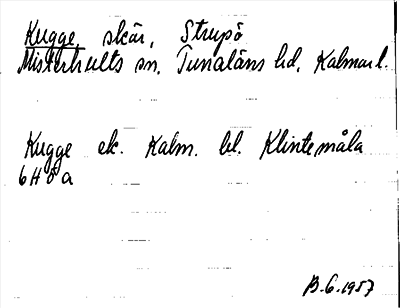 Kugge, skär, Strupö
Misterhults sn. Tunaläns hd, Kalmar l.
Kugge ek. Kalm. bl. Klintemåla
6H8a
B.G. 1957